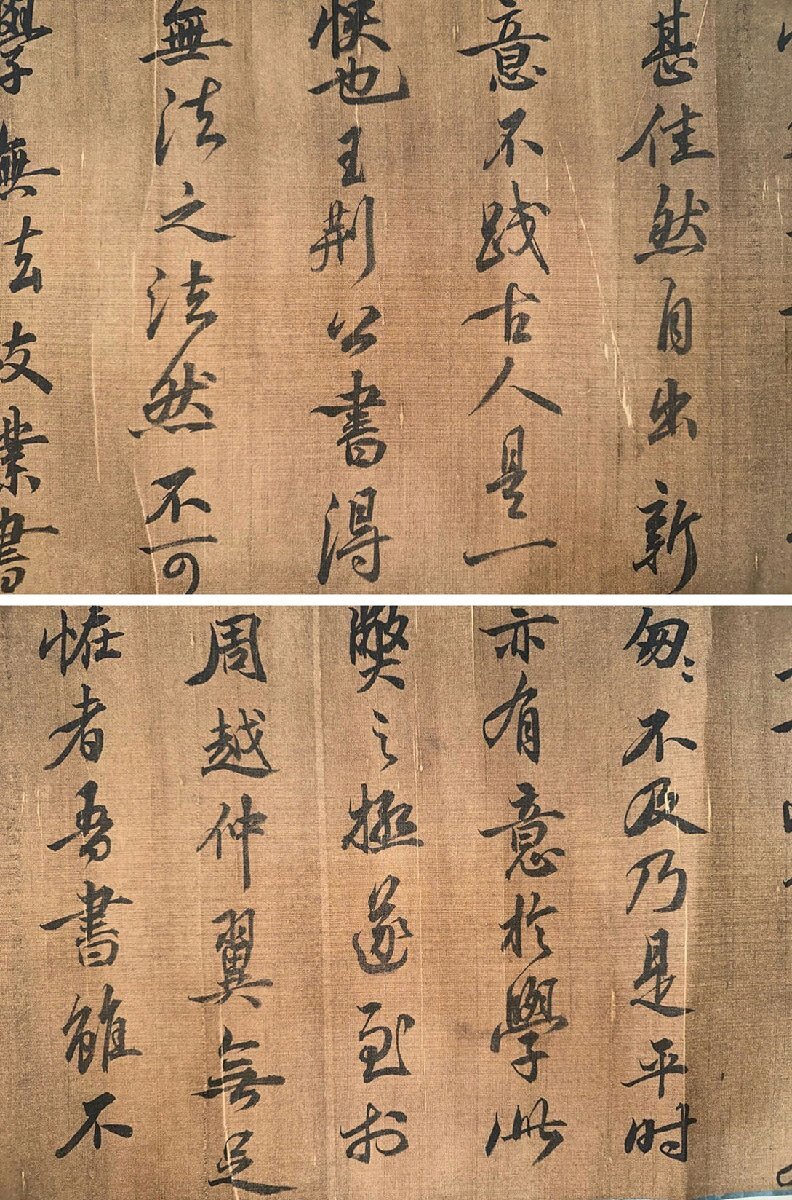 甚佳然自出新
意不踐古人是一
快也王荊公書得
無法之法然不可
學無法故業書
匆匆不及乃是平时
亦有意於學此
弊之極遂至於
周越仲翼無足
怪者吾書雖不